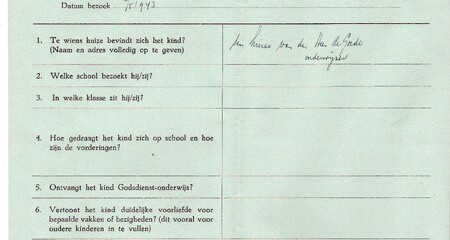 Datum bezoek 1943
1. Te wiens huize bevindt zich het kind?
(Naam en adres volledig op te geven)
ten huize van den Heer de Goede
onderwijzer
2. Welke school bezoekt hij/zij?
3. In welke klasse zit hij/zij?
4. Hoe gedraagt het kind zich op school en hoe
zijn de vorderingen?
5. Ontvangt het kind Godsdienst-onderwijs?
6. Vertoont het kind duidelijke voorliefde voor
bepaalde vakken of bezigheden? (dit vooral voor
oudere kinderen in te vullen)